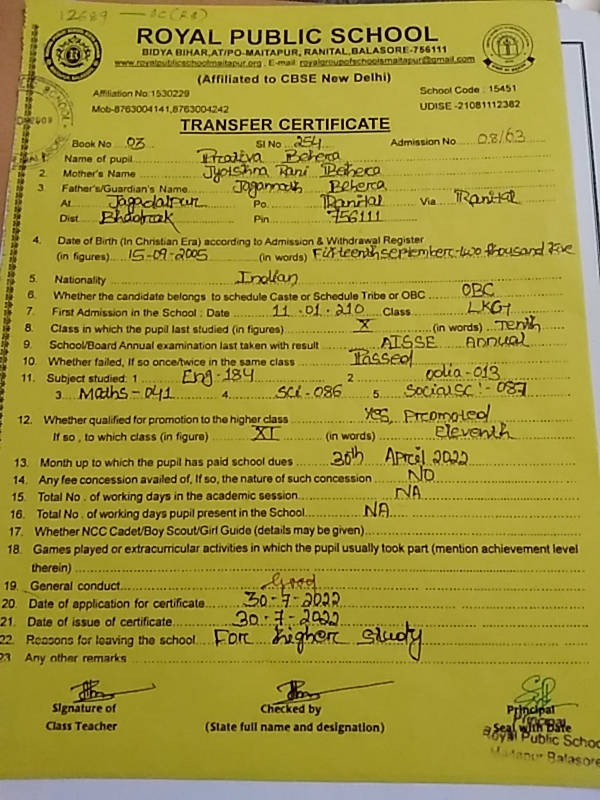 12689 - OC(RB)
ROYAL PUBLIC SCHOOL
BIDYA BIHAR,AT/PO-MAITAPUR, RANITAL,BALASORE-756111
www.royalpublicschoolsmaitapur.org , E-mail: royalgroupofschoolsmaitapur@gmail.com
(Affiliated to CBSE New Delhi)
Affiliation No:1530229 School Code : 15451
Mob-8763004141,8763004242 UDISE -21081112382
TRANSFER CERTIFICATE
Book No 03 Sl No 254 Admission No 08/63
Name of pupil Prativa Behera
2. Mother's Name Jyotshna Rani Behera
3. Father's/Guardian's Name Jagannath Behera
At Jagadalpur Po. Ranital Via Ranital
Dist. Bhadrak Pin 756111
4. Date of Birth (In Christian Era) according to Admission & Withdrawal Register
(in figures) 15-09-2005 (in words) Fifteenth september-two thousand five
5. Nationality Indian
6. Whether the candidate belongs to schedule Caste or Schedule Tribe or OBC OBC
7. First Admission in the School : Date 11.01.210 Class LKG
8. Class in which the pupil last studied (in figures) X (in words) Tenth
9. School/Board Annual examination last taken with result AISSE Annual
10. Whether failed, If so once/twice in the same class Passed
11. Subject studied: 1 Eng-184 2 odia-013
3. Maths-041 4. Sci-086 5. Social Sc'-087
12. Whether qualified for promotion to the higher class Yes, Promoted
If so , to which class (in figure) XI (in words) Eleventh
13. Month up to which the pupil has paid school dues 30th April 2022
14. Any fee concession availed of, If so, the nature of such concession NO
15. Total No . of working days in the academic session NA
16. Total No . of working days pupil present in the School NA
17. Whether NCC Cadet/Boy Scout/Girl Guide (details may be given)
18. Games played or extracurricular activities in which the pupil usually took part (mention achievement level
therein)
19. General conduct Good
20. Date of application for certificate 30-7-2022
21. Date of issue of certificate 30-7-2022
22. Reasons for leaving the school For higher study
23 Any other remarks
Signature of Checked by Principal
Class Teacher (State full name and designation) Seal with Date
Principal
Royal Public School
Maitapur Balasore